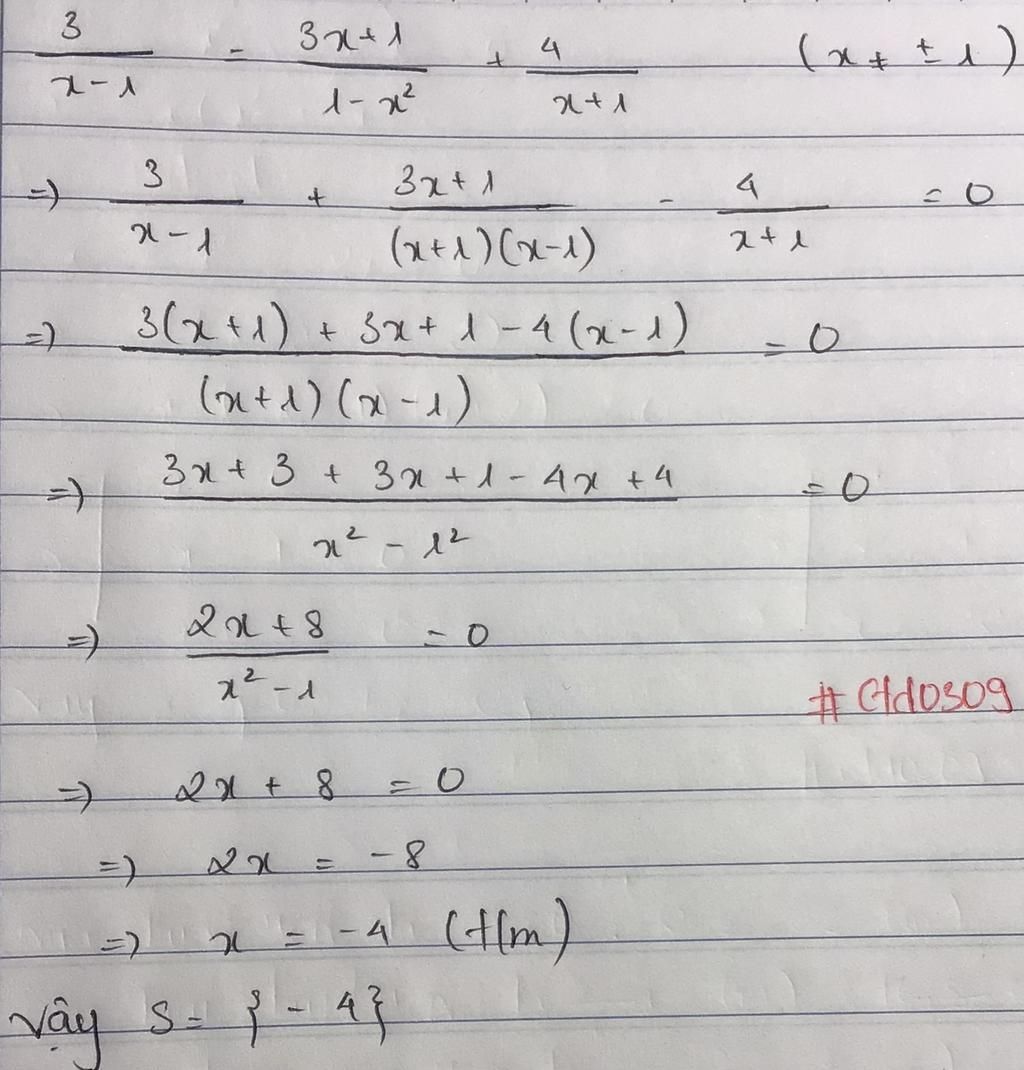 3/(x-1) = (3x+1)/(1-x²) + 4/(x+1) (x ≠ ±1)
=) 3/(x-1) + (3x+1)/((x+1)(x-1)) - 4/(x+1) = 0
=) (3(x+1) + 3x+1 - 4(x-1))/((x+1)(x-1)) = 0
=) (3x+3 + 3x+1 - 4x+4)/(x² - 1²) = 0
=) (2x+8)/(x²-1) = 0
#Ctd0309
=) 2x + 8 = 0
=) 2x = -8
=) x = -4 (t/m)
Vậy S = {-4}